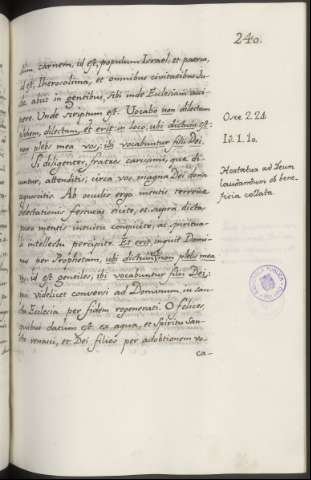 240.
dum carnem, id est, populum Israel, et patria,
id est, Iherosolima, et omnibus civitatibus Ju-
dæ atus in gentibus, sibi inde Ecclesiam acci-
pere. Unde scriptum est: Vocabo non dilectam
dilectam, et erit in loco, ubi dictum est:
non plebs mea vos; ibi vocabuntur filii Dei.
Si diligenter, fratres carissimi, quæ di-
cuntur, attenditis, circa vos, magna Dei dona
Ab oculis ergo mentis terrenæ
delectationis et supra dicta
mentis intuitu conspicite, ac spiritua-
li intellectu percipite. Et erit, inquit Domi-
nus per Prophetam, ubi dictum est non plebs mea
vos, id est gentiles, ibi vocabuntur filii Dei,
videlicet conversi ad Dominum, in sanc-
ta Ecclesia per fidem regenerati. O felices,
quibus datum est ex aqua, et Spiritu San-
cto renasci, et Dei filios per adobtionem vo-
ca-
Osee 2.24.
Id. 1. 10.
Hortatur ad Deum
laudandum ob bene-
ficia collata.